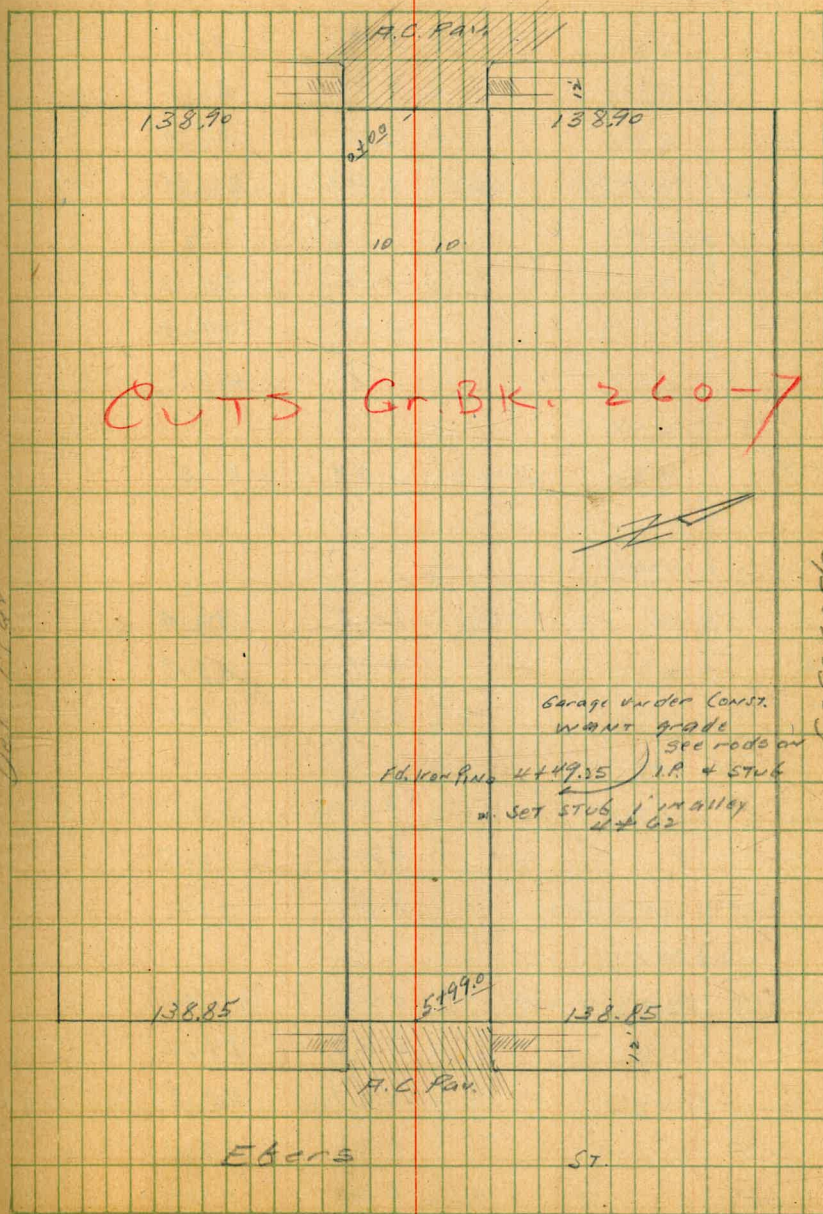 A.C. Pav.
12'
138.90 138.90
0+00
10 10
CUTS Gr. BK. 260-7
Garage under Const.
WANT grade
See rods on
Fd. Iron Pin 4+49.35 I.P. & STUB
SET STUB 1' in alley
4+62
5+99.0
138.85 138.85
12'
A.C. Pav.
Ebers St.